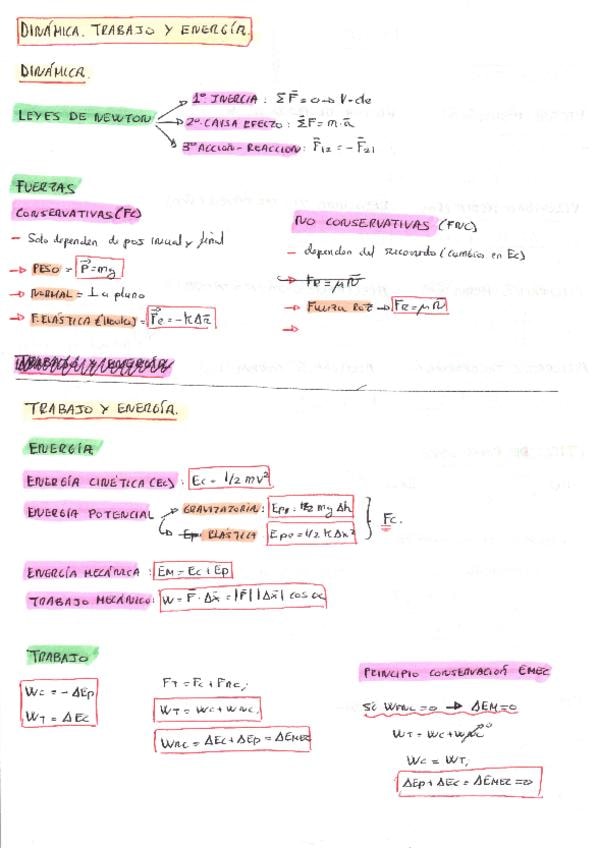 DINÁMICA. TRABAJO Y ENERGÍA.
DINÁMICA.
LEYES DE NEWTON
1º INERCIA: ΣF⃗ = 0 → V=cte
2º CAUSA EFECTO: ΣF⃗ = m·a⃗
3º ACCION - REACCION: F⃗12 = -F⃗21
FUERZAS
CONSERVATIVAS (FC)
- Solo dependen de pos inicial y final
→ PESO = P⃗=mg
→ NORMAL = ⊥ a plano
→ F. ELÁSTICA (Hooke) = F⃗e = -KΔx⃗
NO CONSERVATIVAS (FNC)
- dependen del recorrido (cambio en Ec)
→ FR = μN
→ FUERZA ROZ → FR = μN
→
TRABAJO Y ENERGÍA
TRABAJO Y ENERGÍA.
ENERGÍA
ENERGÍA CINÉTICA (EC): Ec = 1/2 mv²
ENERGÍA POTENCIAL
GRAVITATORIA: Epg = mgΔh
Ep ELÁSTICA Epe = 1/2 KΔx²
Fc.
ENERGÍA MECÁNICA: EM = Ec + Ep
TRABAJO MECÁNICO: W = F⃗·Δx⃗ = |F||Δx⃗| cos α
TRABAJO
WC = -ΔEp
WT = ΔEc
FT = FC + FNC;
WT = WC + WNC;
WNC = ΔEc + ΔEp = ΔEMEC
PRINCIPIO CONSERVACIÓN EMEC
Si WFNC = 0 → ΔEM = 0
WT = WC + WNC 0
WC = WT;
ΔEp + ΔEc = ΔEMEC = 0